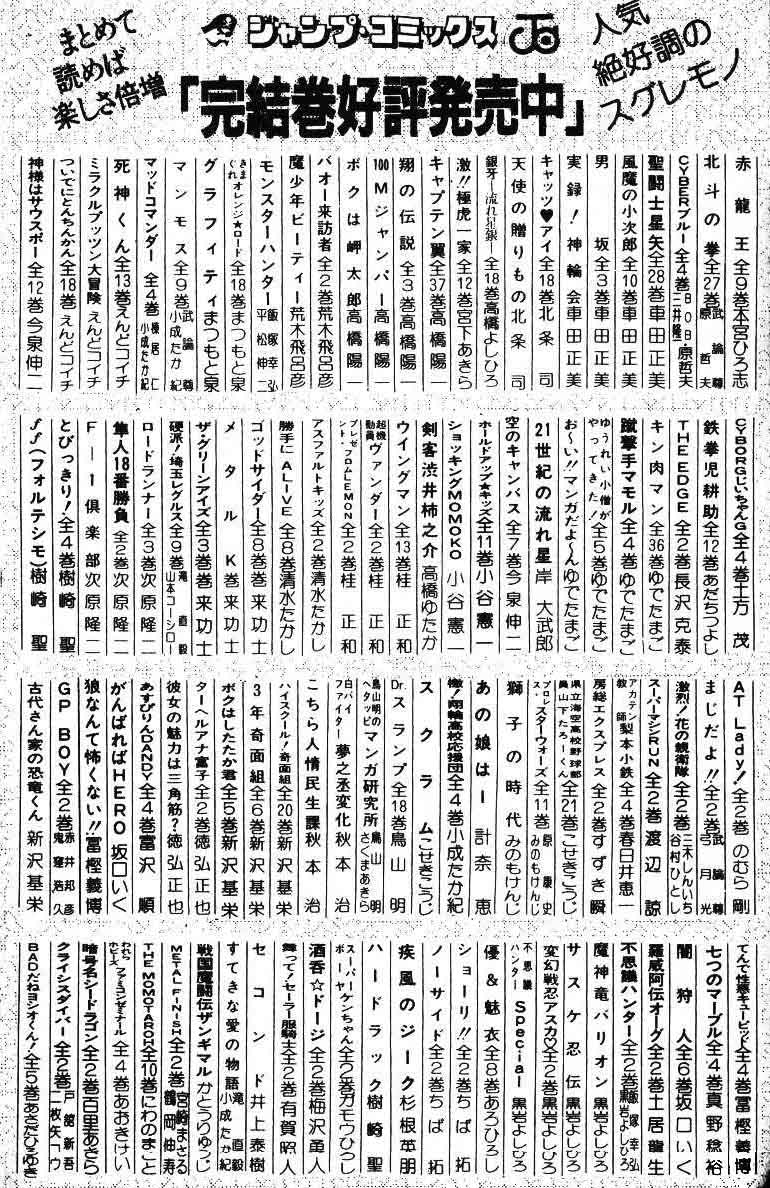 まとめて
読めば
楽しさ倍増
ジャンプ・コミックス
人気
絶好調の
スグレモノ
「完結巻好評発売中」
赤龍王 全9巻 本宮ひろ志
北斗の拳 全27巻 武論尊 原哲夫
CYBERブルー 全4巻 BOB・原哲夫 三井隆一
聖闘士星矢 全28巻 車田正美
風魔の小次郎 全10巻 車田正美
男坂 全3巻 車田正美
実録!神輪会 車田正美
キャッツ♥アイ 全18巻 北条司
天使の贈りもの 北条司
銀牙―流れ星 銀― 全18巻 高橋よしひろ
激!!極虎一家 全12巻 宮下あきら
キャプテン翼 全37巻 高橋陽一
翔の伝説 全3巻 高橋陽一
100Mジャンパー 高橋陽一
ボクは岬太郎 高橋陽一
バオー来訪者 全2巻 荒木飛呂彦
魔少年ビーティー 荒木飛呂彦
モンスターハンター 飯塚幸弘 平松伸二
きまぐれオレンジ★ロード 全18巻 まつもと泉
グラフィティ まつもと泉
マンモス 全9巻 武論尊 小成たか紀
マッドコマンダー 全4巻 榛居仁 小成たか紀
死神くん 全13巻 えんどコイチ
ミラクルプッツン大冒険 えんどコイチ
ついでにとんちんかん 全18巻 えんどコイチ
神様はサウスポー 全12巻 今泉伸二
CYBORGじいちゃんG 全4巻 土方茂
鉄拳児耕助 全12巻 あだちつよし
THE EDGE 全2巻 長沢克泰
キン肉マン 全36巻 ゆでたまご
蹴撃手マモル 全4巻 ゆでたまご
ゆうれい小僧がやってきた! 全5巻 ゆでたまご
お~い!!マンガだよ~ん ゆでたまご
21世紀の流れ星 岸大武郎
空のキャンバス 全7巻 今泉伸二
ホールドアップ★キッズ 全11巻 小谷憲一
ショッキングMOMOKO 小谷憲一
剣客渋井柿之介 高橋ゆたか
ウイングマン 全13巻 桂正和
超機動員ヴァンダー 全2巻 桂正和
プレゼント・フロムLEMON 全2巻 桂正和
アスファルトキッズ 全2巻 清水たかし
勝手にALIVE 全8巻 清水たかし
ゴッドサイダー 全8巻 巻来功士
メタルK 巻来功士
ザ・グリーンアイズ 全3巻 巻来功士
硬派!埼玉レグルス 全9巻 滝直毅 山本コーシロー
ロードランナー 全3巻 次原隆二
隼人18番勝負 全2巻 次原隆二
F―1倶楽部 次原隆二
とびっきり! 全4巻 樹崎聖
ff(フォルテシモ) 樹崎聖
AT Lady! 全2巻 のむら剛
まじだよ!! 全2巻 武論尊 弓月光
激烈!花の親衛隊 全2巻 三木しんいち 谷村ひとし
スーパーマシンRUN 全2巻 渡辺諒
アカテン教師梨本小鉄 全4巻 春日井恵一
房総エクスプレス 全2巻 すずき瞬
県立海空高校野球部員山下たろーくん 全21巻 こせきこうじ
プロレス・スターウォーズ 全11巻 原康史 みのもけんじ
獅子の時代 みのもけんじ
あの娘は― 計奈恵
檄!翔輪高校応援団 全4巻 小成たか紀
スクラム こせきこうじ
Dr.スランプ 全18巻 鳥山明
鳥山明のヘタッピマンガ研究所 鳥山明 さくまあきら
白バイファイター夢之丞変化 秋本治
こちら人情民生課 秋本治
ハイスクール!奇面組 全20巻 新沢基栄
3年奇面組 全6巻 新沢基栄
ボクはしたたか君 全5巻 新沢基栄
ターヘルアナ富子 全2巻 徳弘正也
彼女の魅力は三角筋? 徳弘正也
あすぴりんDANDY 全4巻 富沢順
がんばればHERO 坂口いく
狼なんて怖くない!! 冨樫義博
GP BOY 全2巻 赤井邦彦 鬼窪浩久
古代さん家の恐竜くん 新沢基栄
てんで性悪キューピッド 全4巻 冨樫義博
七つのマーブル 全4巻 真野稔裕
闇狩人 全6巻 坂口いく
羅威阿伝オーグ 全2巻 土居龍生
不思議ハンター 全2巻 飯塚幸弘 黒岩よしひろ
魔神竜バリオン 黒岩よしひろ
サスケ忍伝 黒岩よしひろ
変幻戦忍アスカ♡ 全2巻 黒岩よしひろ
不思議ハンターSpecial 黒岩よしひろ
優&魅衣 全8巻 あろひろし
ショーリ!! 全2巻 ちば拓
ノーサイド 全2巻 ちば拓
疾風のジーク 杉根英明
ハードラック 樹崎聖
スーパーボーヤケンちゃん 全2巻 ガモウひろし
酒呑☆ドージ 全2巻 梅沢勇人
舞って!セーラー服騎士 全2巻 有賀照人
セコンド 井上泰樹
すてきな愛の物語 滝直毅 小成たか紀
戦国魔闘伝ザンギマル かとうりゅうじ
METAL FINISH 全2巻 宮崎まさる 鶴岡伸寿
THE MOMOTAROH 全10巻 にわのまこと
われらホビーズファミコンゼミナール 全4巻 あおきけい
暗号名シードラゴン 全2巻 百里あきら
クライシスダイバー 全2巻 戸舘新吾 二枚矢コウ
BADだねヨシオくん! 全5巻 あさだひろゆき